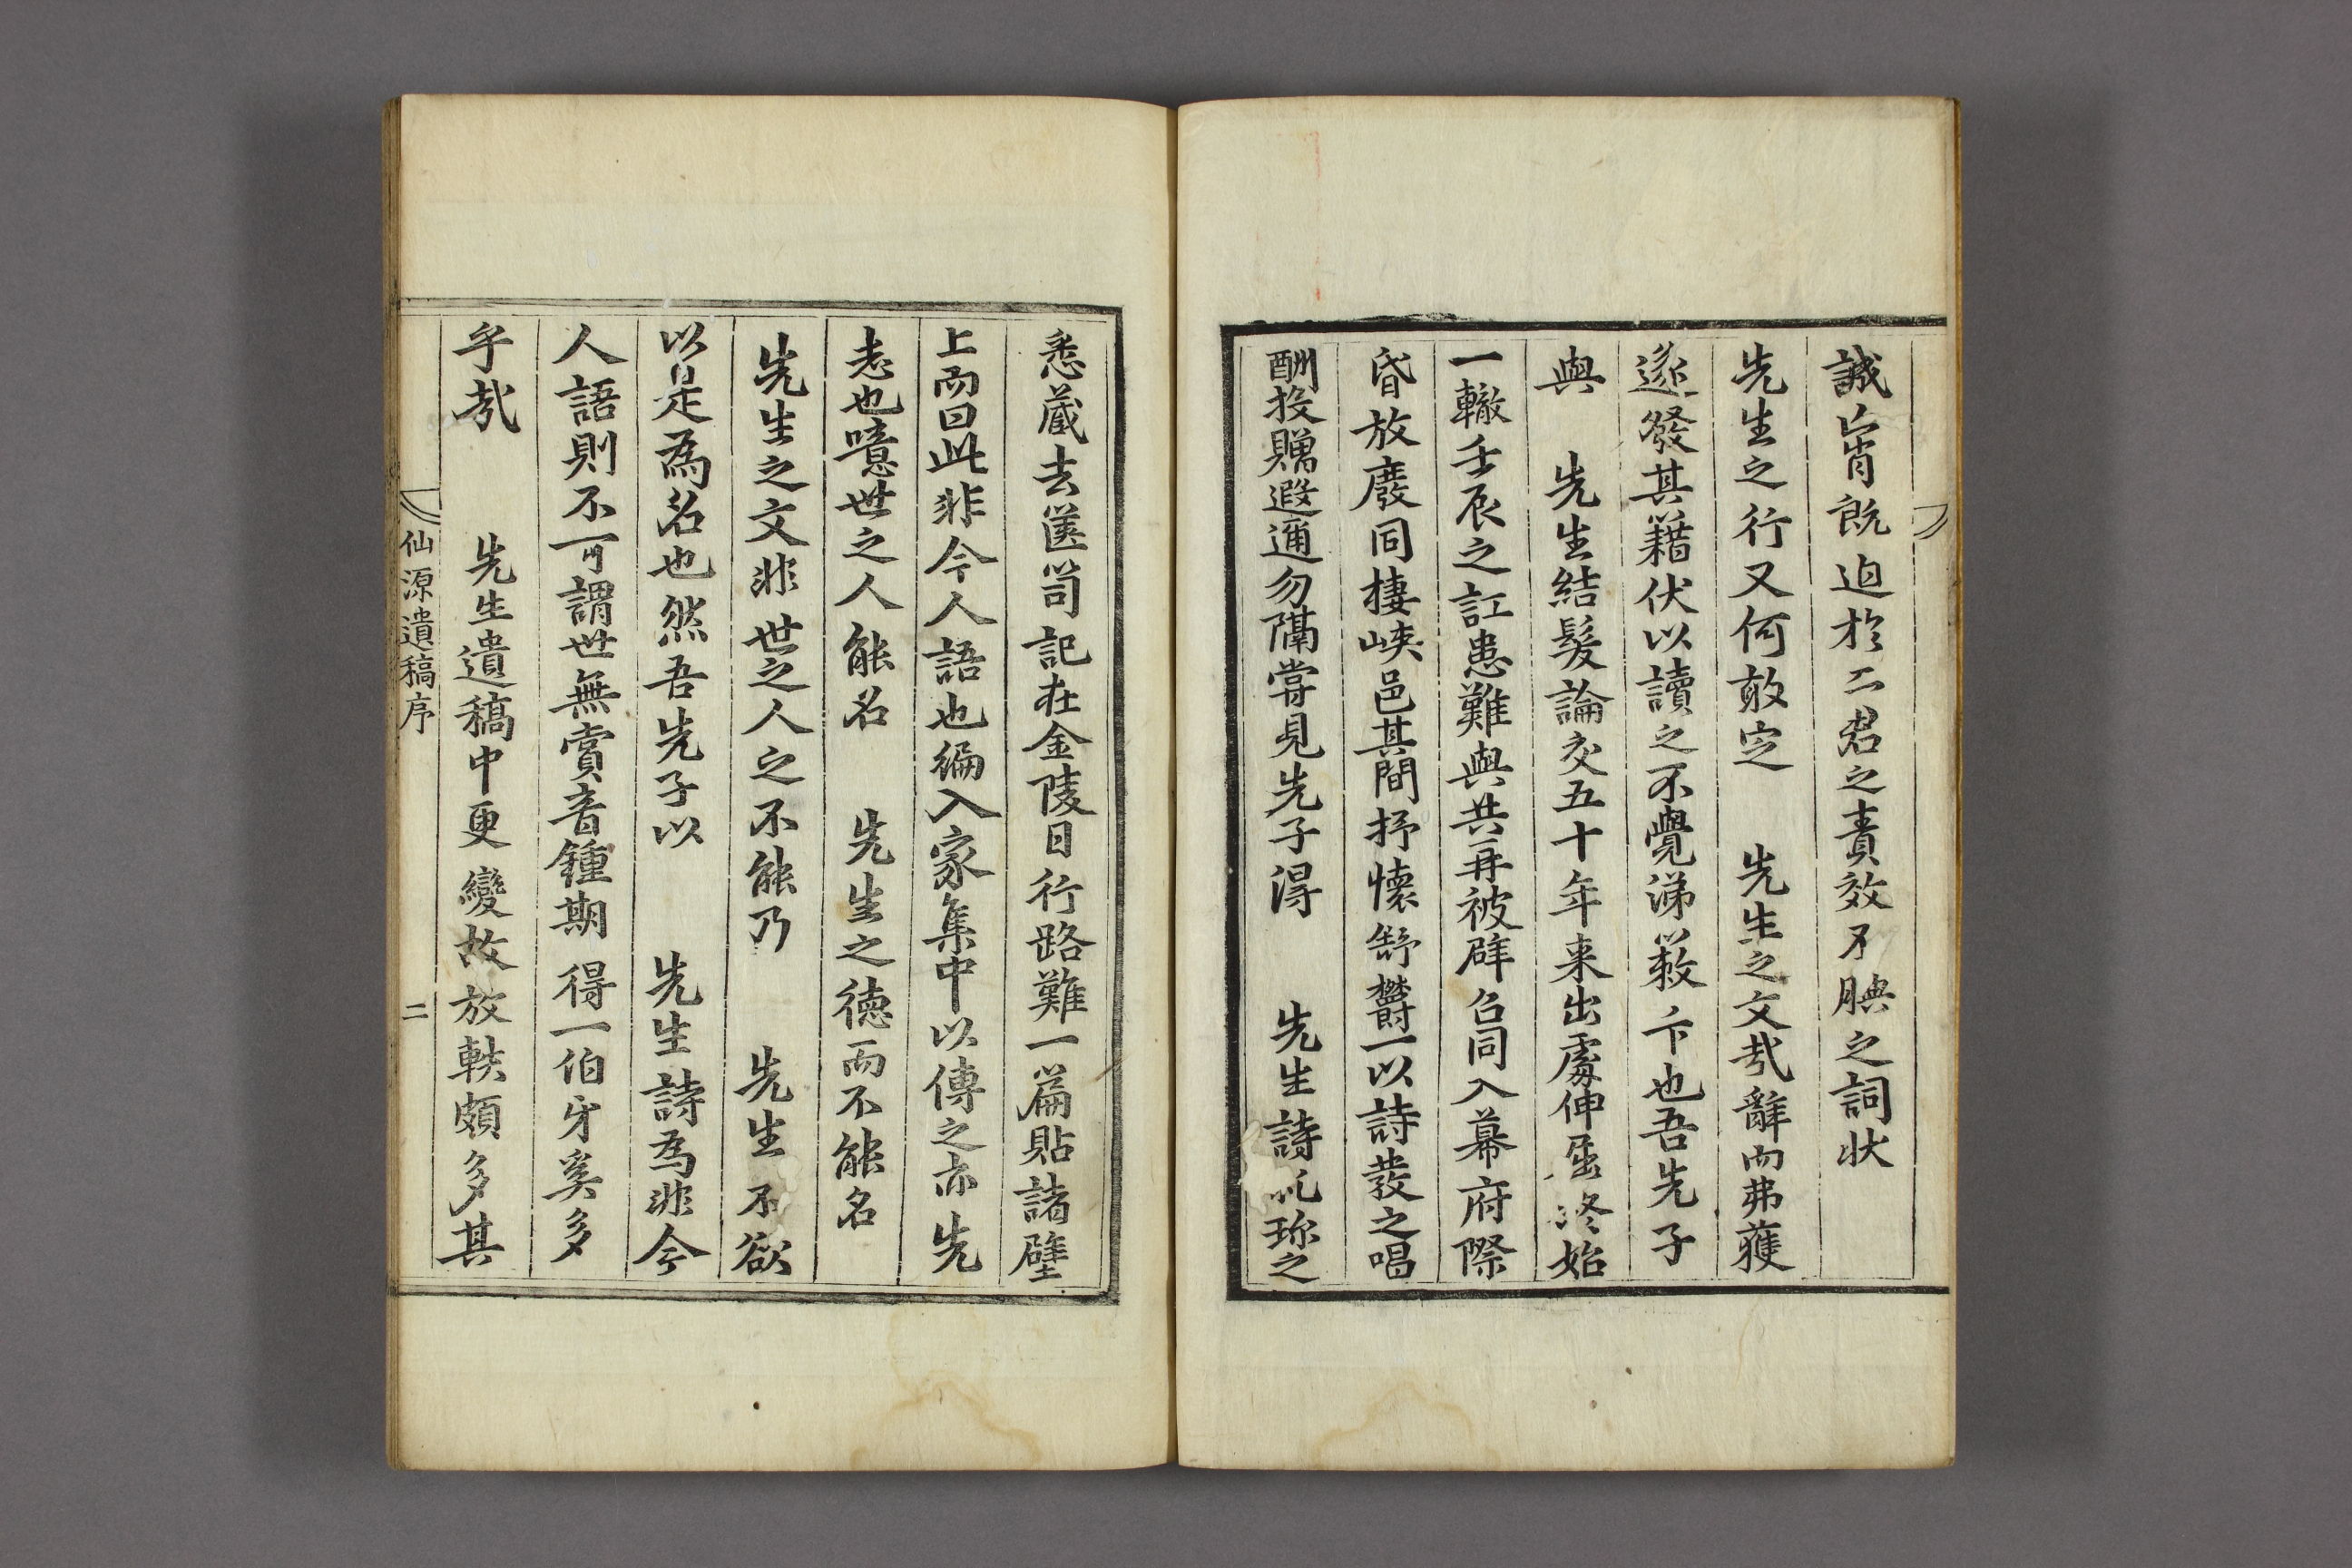 誠亡胥既迫於二君之責效不腆之詞狀
先生之行又何敢定 先生之文哉辭而弗獲
遂發其籍伏以讀之不覺涕簌卞也吾先子
與 先生結髮論交五十年来出處伸屈終始
一轍壬辰之訌患難與共再被辟召同入幕府際
昏放廢同棲峽邑其間抒懷舒欝一以詩裝之唱
酬投贈遐邇勿隔甞見先子得 先生詩吼珎之
悉藏去篋笥記在金陵日行路難一篇貼諸壁
上而曰此非今人語也編入家集中以傳之亦先
志也噫世之人能名 先生之德而不能名
先生之文非世之人之不能乃 先生不欲
以是為名也然吾先子以 先生詩為非今
人語則不可謂世無賞音鍾期得一伯牙奚多
乎哉 先生遺稿中更變故放軼頗多其
仙源遺稿序 二